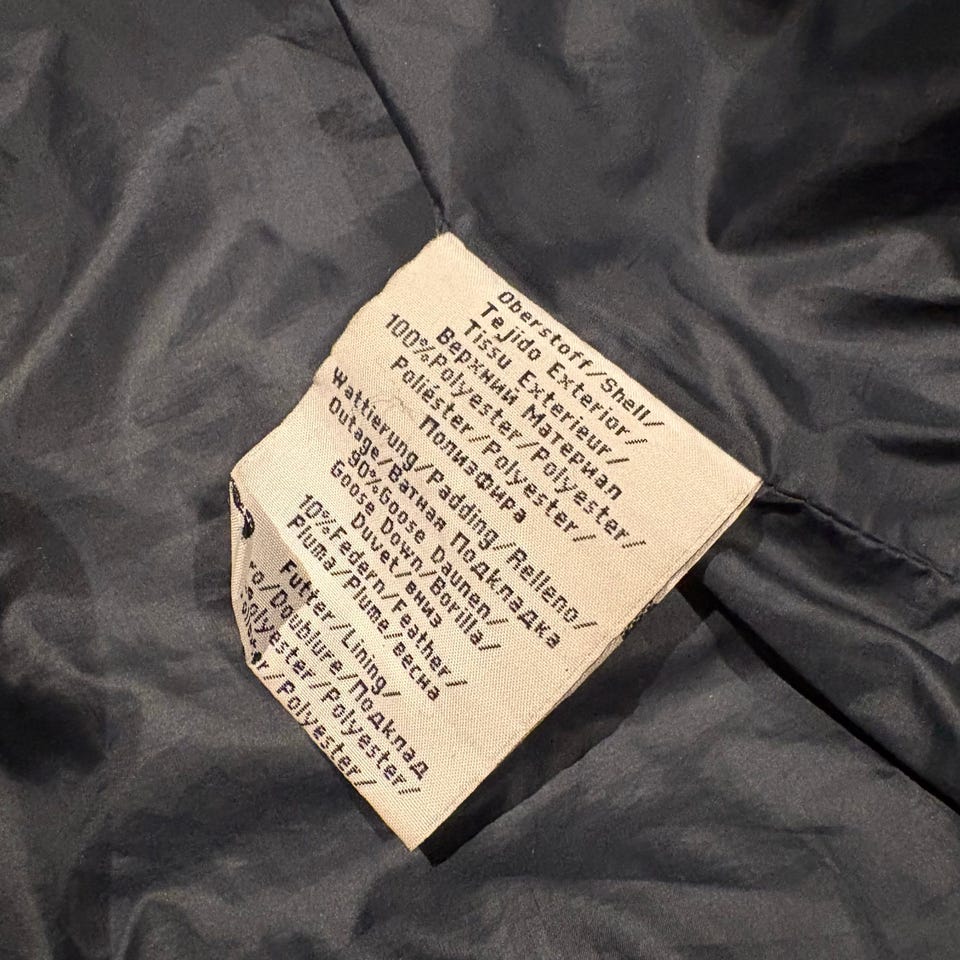 Oberstoff/Shell/
Tejido Exterior/
Tissu Exterieur/
Верхний Материал
100%Polyester/Polyester/
Poliéster/Polyester/
Полиэфира
Wattierung/Padding/Relleno/
Outage/Ватная Подкладка
90%Goose Daunen/
Goose Down/Borilla/
Duvet/вниз
10%Federn/Feather/
Pluma/Plume/весна
Futter/Lining/
ro/Doublure/Подклад
olyester/Polyester/
er/Polyester/